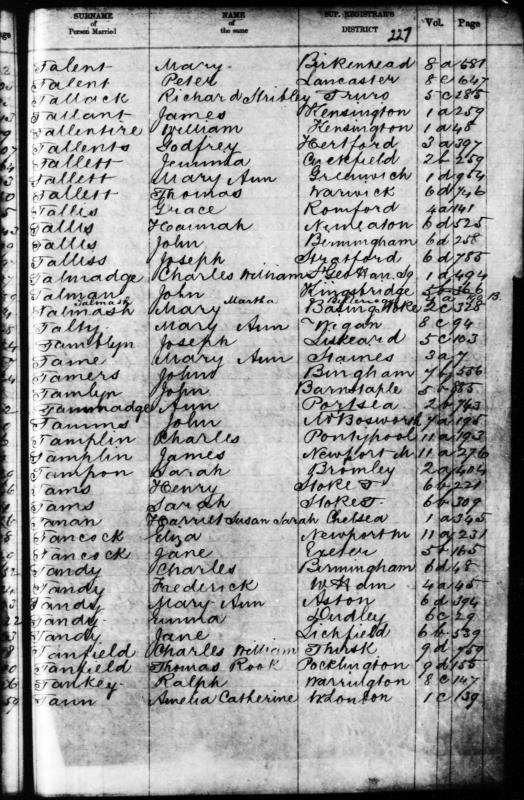 SURNAME of Person Married NAME of the same SUP. REGISTRAR'S DISTRICT 227 Vol. Page
Talent Mary Birkenhead 8a 581
Talent Peter Lancaster 8c 1647
Tallack Richard Stribley Truro 5c 285
Tallant James Kensington 1a 259
Tallentire William Kensington 1a 48
Tallents Godfrey Hertford 3a 397
Tallett Jemima Cuckfield 2b 259
Tallett Mary Ann Greenwich 1d 964
Tallett Thomas Warwick 6d 746
Tallis Grace Romford 4a 141
Tallis Hannah Nuneaton 6d 525
Tallis John Birmingham 6d 258
Talliss Joseph Stratford 6d 785
Talmadge Charles William St Geo. Han. Sq. 1d 494
Talman John Kingsbridge 5b 366
Talmash Martha Billericay 4a 89 B.
Talmash Mary Basingstoke 2c 328
Talty Mary Ann Wigan 8c 94
Tamblyn Joseph Liskeard 5c 103
Tame Mary Ann Staines 3a 7
Tamers John Bingham 7b 556
Tamlyn John Barnstaple 5b 855
Tammadge Ann Portsea 2b 743
Tamms John Mt Bosworth 7a 195
Tamplin Charles Pontypool 11a 193
Tamplin James Newport M 11a 276
Tampon Sarah Bromley 2a 404
Tams Henry Stoke T 6b 221
Tams Sarah Stoke T. 6b 309
Tanan Harriet Susan Sarah Chelsea 1a 345
Tancock Eliza Newport M 11a 231
Tancock Jane Exeter 5b 165
Tandy Charles Birmingham 6d 48
Tandy Frederick W Ham 4a 45
Tandy Mary Ann Aston 6d 394
Tandy Emma Dudley 6c 29
Tandy Jane Lichfield 6b 539
Tanfield Charles William Thirsk 9d 759
Tanfield Thomas Rook Pocklington 9d 155
Tankey Ralph Warrington 8c 147
Tann Amelia Catherine W London 1c 139